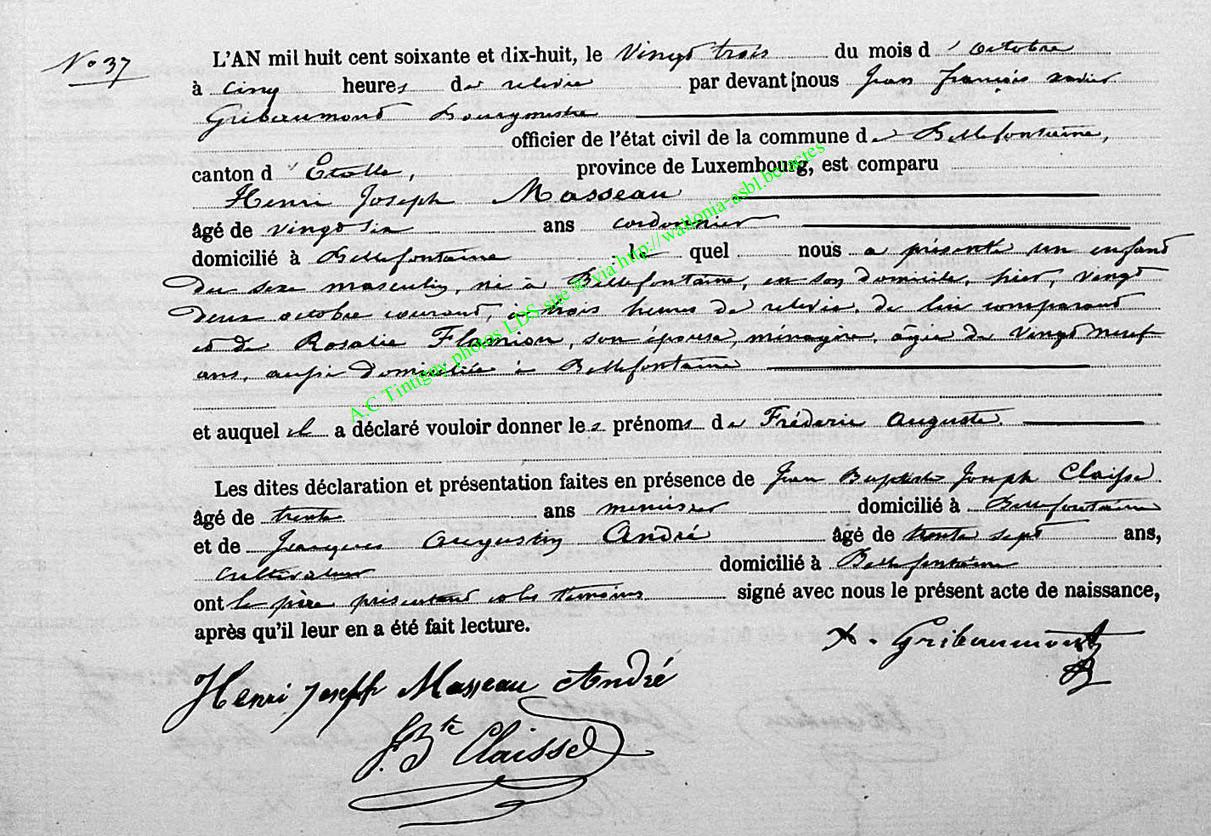 No 37
L'AN mil huit cent soixante et dix-huit, le Vingt trois du mois d'octobre
à cinq heures de relevée par devant nous Jean François xavier
Gribaumont Bourgmestre
officier de l'état civil de la commune de Bellefontaine,
canton d'Etalle, province de Luxembourg, est comparu
Henri Joseph Masseau
âgé de vingt six ans cordonnier
domicilié à Bellefontaine le quel nous a présenté un enfant
du sexe masculin, né à Bellefontaine, en son domicile, hier, vingt
deux octobre courant, à trois heures de relevée, de lui comparant
et de Rosalie Flamion, son épouse, ménagère, âgée de Vingt neuf
ans, aussi domiciliée à Bellefontaine
et auquel il a déclaré vouloir donner les prénoms de Fréderic Auguste
Les dites déclaration et présentation faites en présence de Jean Baptiste Joseph Claisse
âgé de trente ans menuisier domicilié à Bellefontaine
et de Jacques Augustin André âgé de trente sept ans,
cultivateur domicilié à Bellefontaine
ont le père présentant et les témoins signé avec nous le présent acte de naissance,
après qu'il leur en a été fait lecture.
X. Gribaumont
Henri Joseph Masseau André
J. Bte Claisse
A.C Tintigny photos LDS site @ via http://wallonia-asbl.be/actes